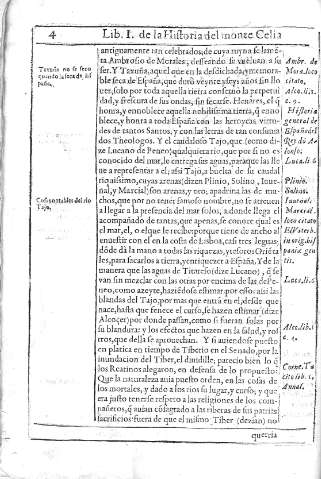 4 Lib. I. de la Historia del monte Celia
antiguamente tan celebrados, de cuya ruyna se lamẽ-
ta Ambrosio de Morales, desseando se vuelvan a su
ser. Y Tavuña, aquel que en la desdichada, y memora-
ble seca de España, que durò veynte y seys años sin llo-
ver, por toda aquella tierra conservò la perpetui-
dad, y frescura de sus ondas, sin secarse. Henares, el q̃
honra, y ennoblece aquella nobilissima tierra, q̃ enno
blece, y honra a toda España con las heroycas virtu-
des de tantos Santos, y con las letras de tan consuma
dos Theologos. Y el caudaloso Tajo, que (como di-
ze Lucano de Peneo) qualquiera rio, que por si no es
conocido del mar, le entrega sus aguas, para que las lle
ve a representar a el; assi Tajo, a buelta de su caudal
riquissimo, cuyas arenas (dizen Plinio, Solino, Iuue-
nal, y Marcial) son arenas, y oro, apadrina las de mu-
chos, que por no tener famoso nombre, no se atreuen
a llegar a la presencia del mar solos, a donde llega el
acompañado de tanto, que apenas, se conoce qual es
el mar, o, el que le recibe; porque tiene de ancho al
enuestir con el en la costa de Lisboa, casi tres leguas,
dõde dà la mano a todas las riquezas, y tesoros Oriẽta
les, para sacarlos a tierra, y enriquecer a España. Y de la
manera que las aguas de Titareso (dize Lucano), q̃ se
van sin mezclar con las otras por encima de las de Pe-
neo, como azeyte, haziẽdose estimar por esso: assi las
blandas del Tajo, por mas que entrà en el, desde que
nace, hasta que fenece el curso, se hazen estimar (dize
Alençer) por donde passan, como si fueran solas por
su blandura y los efectos que hazen en la salud, y ros-
tros, que della se aprouechan. Y si auiendose puesto
en platica en tiempo de Tiberio en el Senado, por la
inundacion del Tiber, el diuidille, pareciò bien lo q̃
los Reatinos alegaron, en defensa de lo propuesto:
Que la naturaleza auia puesto orden, en las cosas de
los mortales, y dado a los rios su lugar, y curso; y que
era justo tenerse respeto a las religiones de los com-
pañeros, q̃ auian cõsagrado a las riberas de sus patrias
sacrificios: fuera de que el mismo Tiber (dezian) no
querria
Tavuña no se seco
quando la seca de Es
paña.
Cosas notables del rio
Tajo.
Ambr. de
Mora. loco
citato.
Alco. li. 1.
c. 9.
Historia
general de
España del
Rey dõ A-
lonso.
Luca. li. 6
Plinio.
Solino.
Iuuenal.
Marcial.
loco citato
Luca. li. 6
Alco. lib. 1
c. 9.
Corne. Ta
cito lib. 1.
Annal.